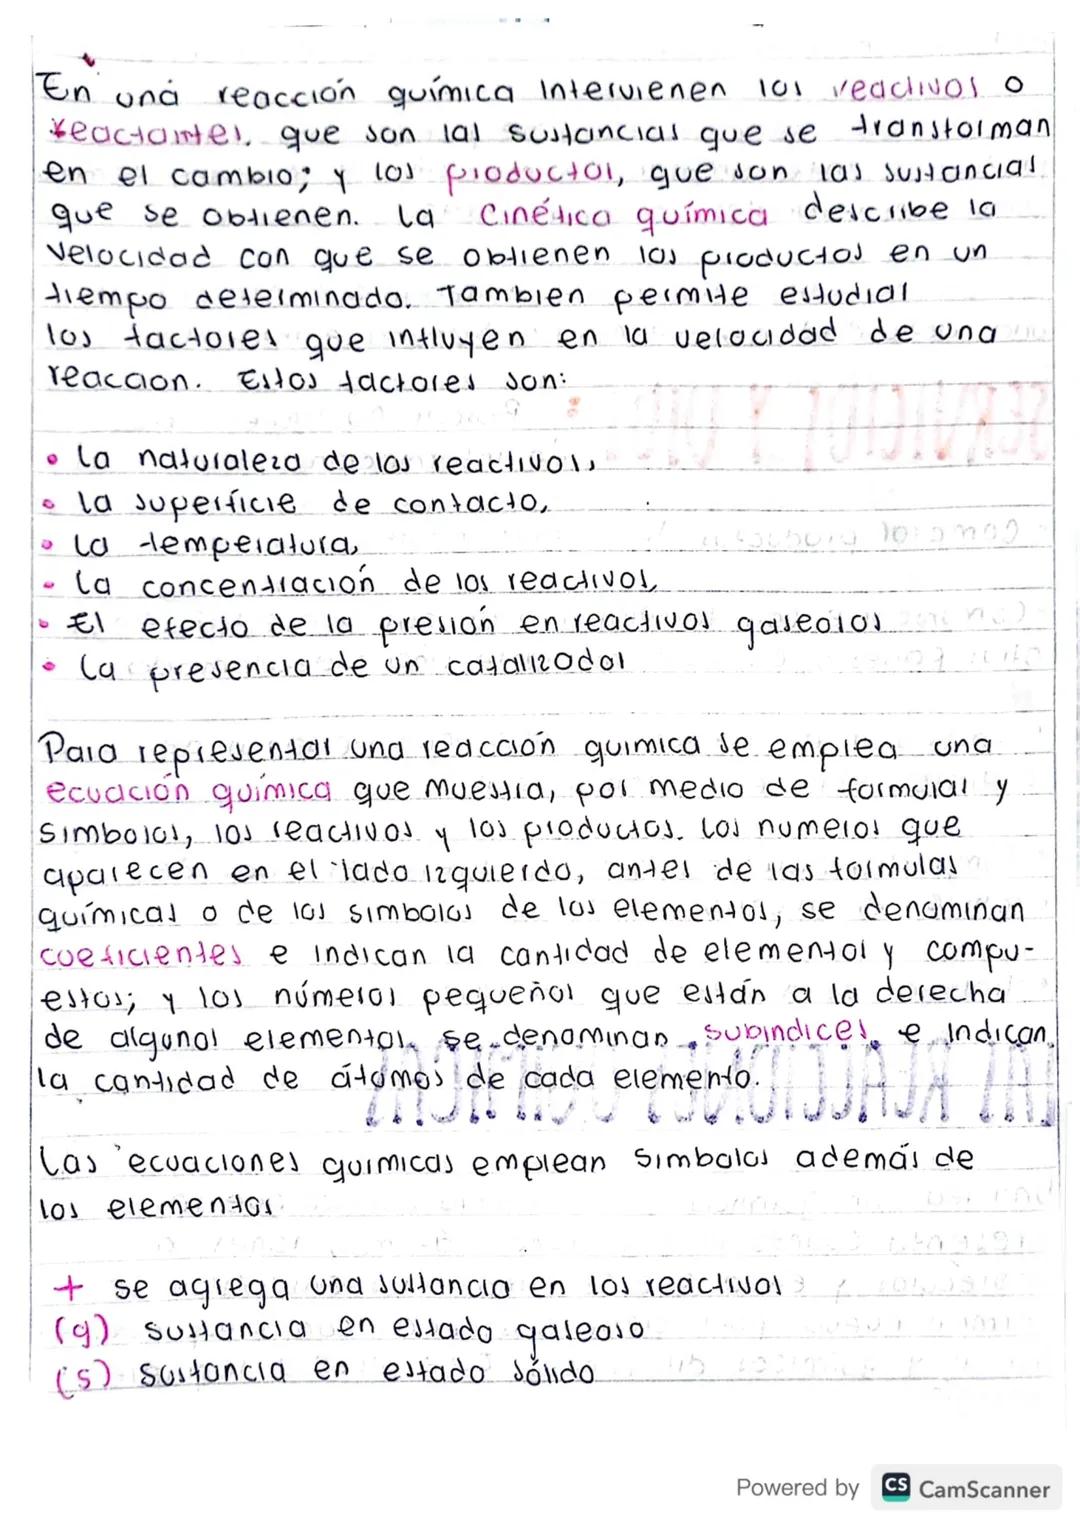 En una reacción química Intervienen los reactivos o
reactantes, que son las sustancias que se transforman
en el cambio; y los productos, que son las sustancias
que se obtienen. La Cinética química describe la
velocidad con que se obtienen los productos en un
tiempo determinado. Tambien permite estudiar
los factores que influyen en la velocidad de una
reaccion. Estos factores son:
• La naturaleza de los reactivos,
• La superficie de contacto,
• La temperatura,
• La concentración de los reactivos,
• El efecto de la presión en reactivos gaseosos
• La presencia de un catalizador
Para representar una reacción quimica se emplea una
ecuación química que muestra, por medio de formulas y
simbolos, los reactivos y los productos. Los numeros que
aparecen en el lado izquierdo, antes de las formulas
químicas o de los simbolos de los elementos, se denominan
coeficientes e indican la cantidad de elementos y compu-
estos; y los números pequeños que están a la derecha
de algunos elementos, se denominan subindices, e Indican
la cantidad de átomos de cada elemento.
Las ecuaciones quimicas emplean simbolos además de
los elementos
+ se agrega una sustancia en los reactivos
(g) sustancia en estado gaseoso
(s) sustancia en estado sólido
Powered by CS CamScanner